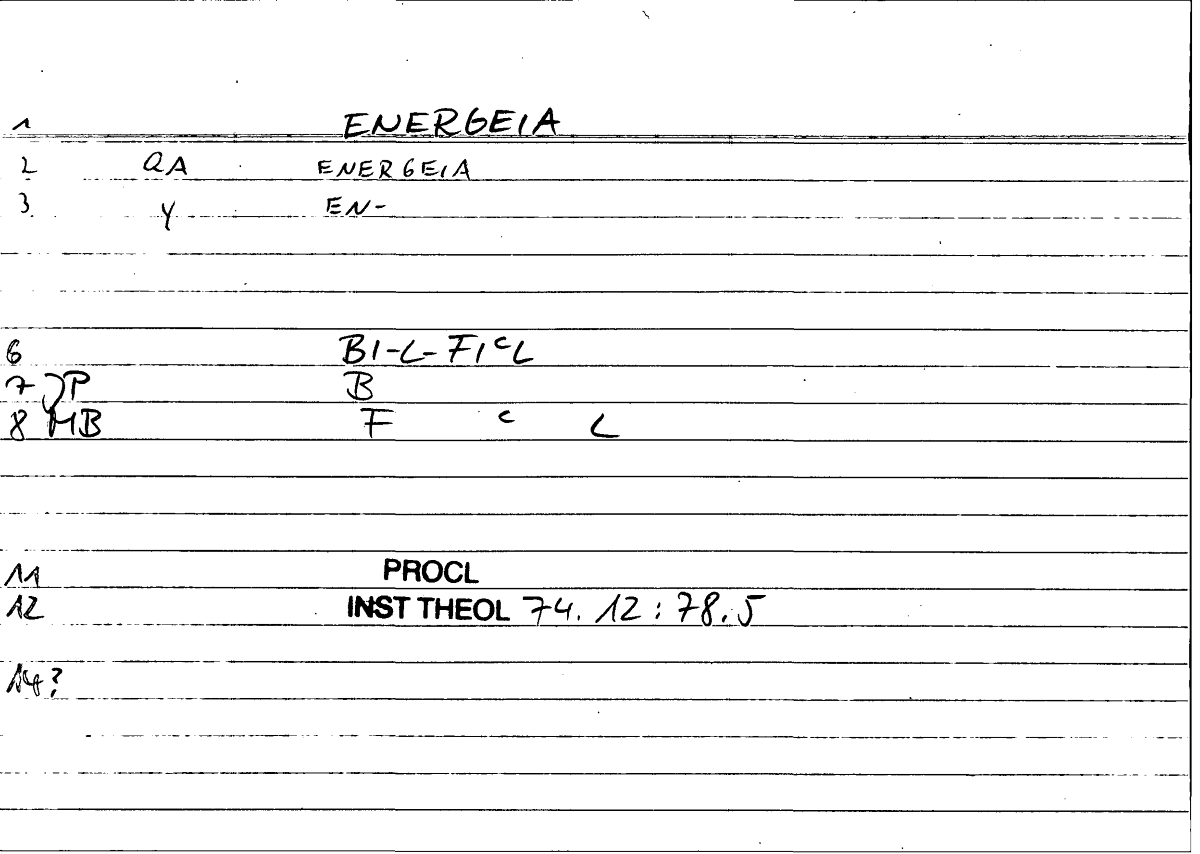 1 ENERGEIA
2 QA ENERGEIA
3 Y EN-
6 BI-L-FIᶜL
7 JP B
8 MB F ᶜ L
11 PROCL
12 INST THEOL 74. 12 : 78.5
14?